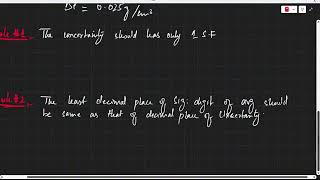 = 0.025 g/cm³
The uncertainty should has only 1 S.F
#2. The least decimal place of sig: digit of avg should
be same as that of decimal place of Uncertainty.